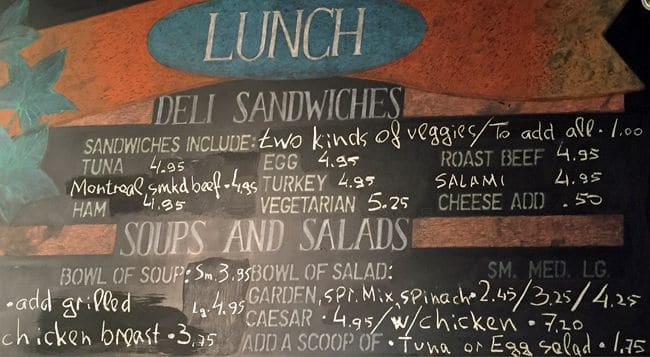 LUNCH
DELI SANDWICHES
SANDWICHES INCLUDE: two kinds of veggies/To add all · 1.00
TUNA 4.95 EGG 4.95 ROAST BEEF 4.95
Montreal smkd beef · 4.95 TURKEY 4.95 SALAMI 4.95
HAM 4.95 VEGETARIAN 5.25 CHEESE ADD .50
SOUPS AND SALADS
BOWL OF SOUP: Sm. 3.95 BOWL OF SALAD: SM. MED. LG.
· add grilled Lg. 4.95 GARDEN, SPr. Mix, spinach · 2.45/3.25/4.25
chicken breast · 3.75 CAESAR · 4.95/w/chicken · 7.20
ADD A SCOOP OF · Tuna or Egg salad · 1.75